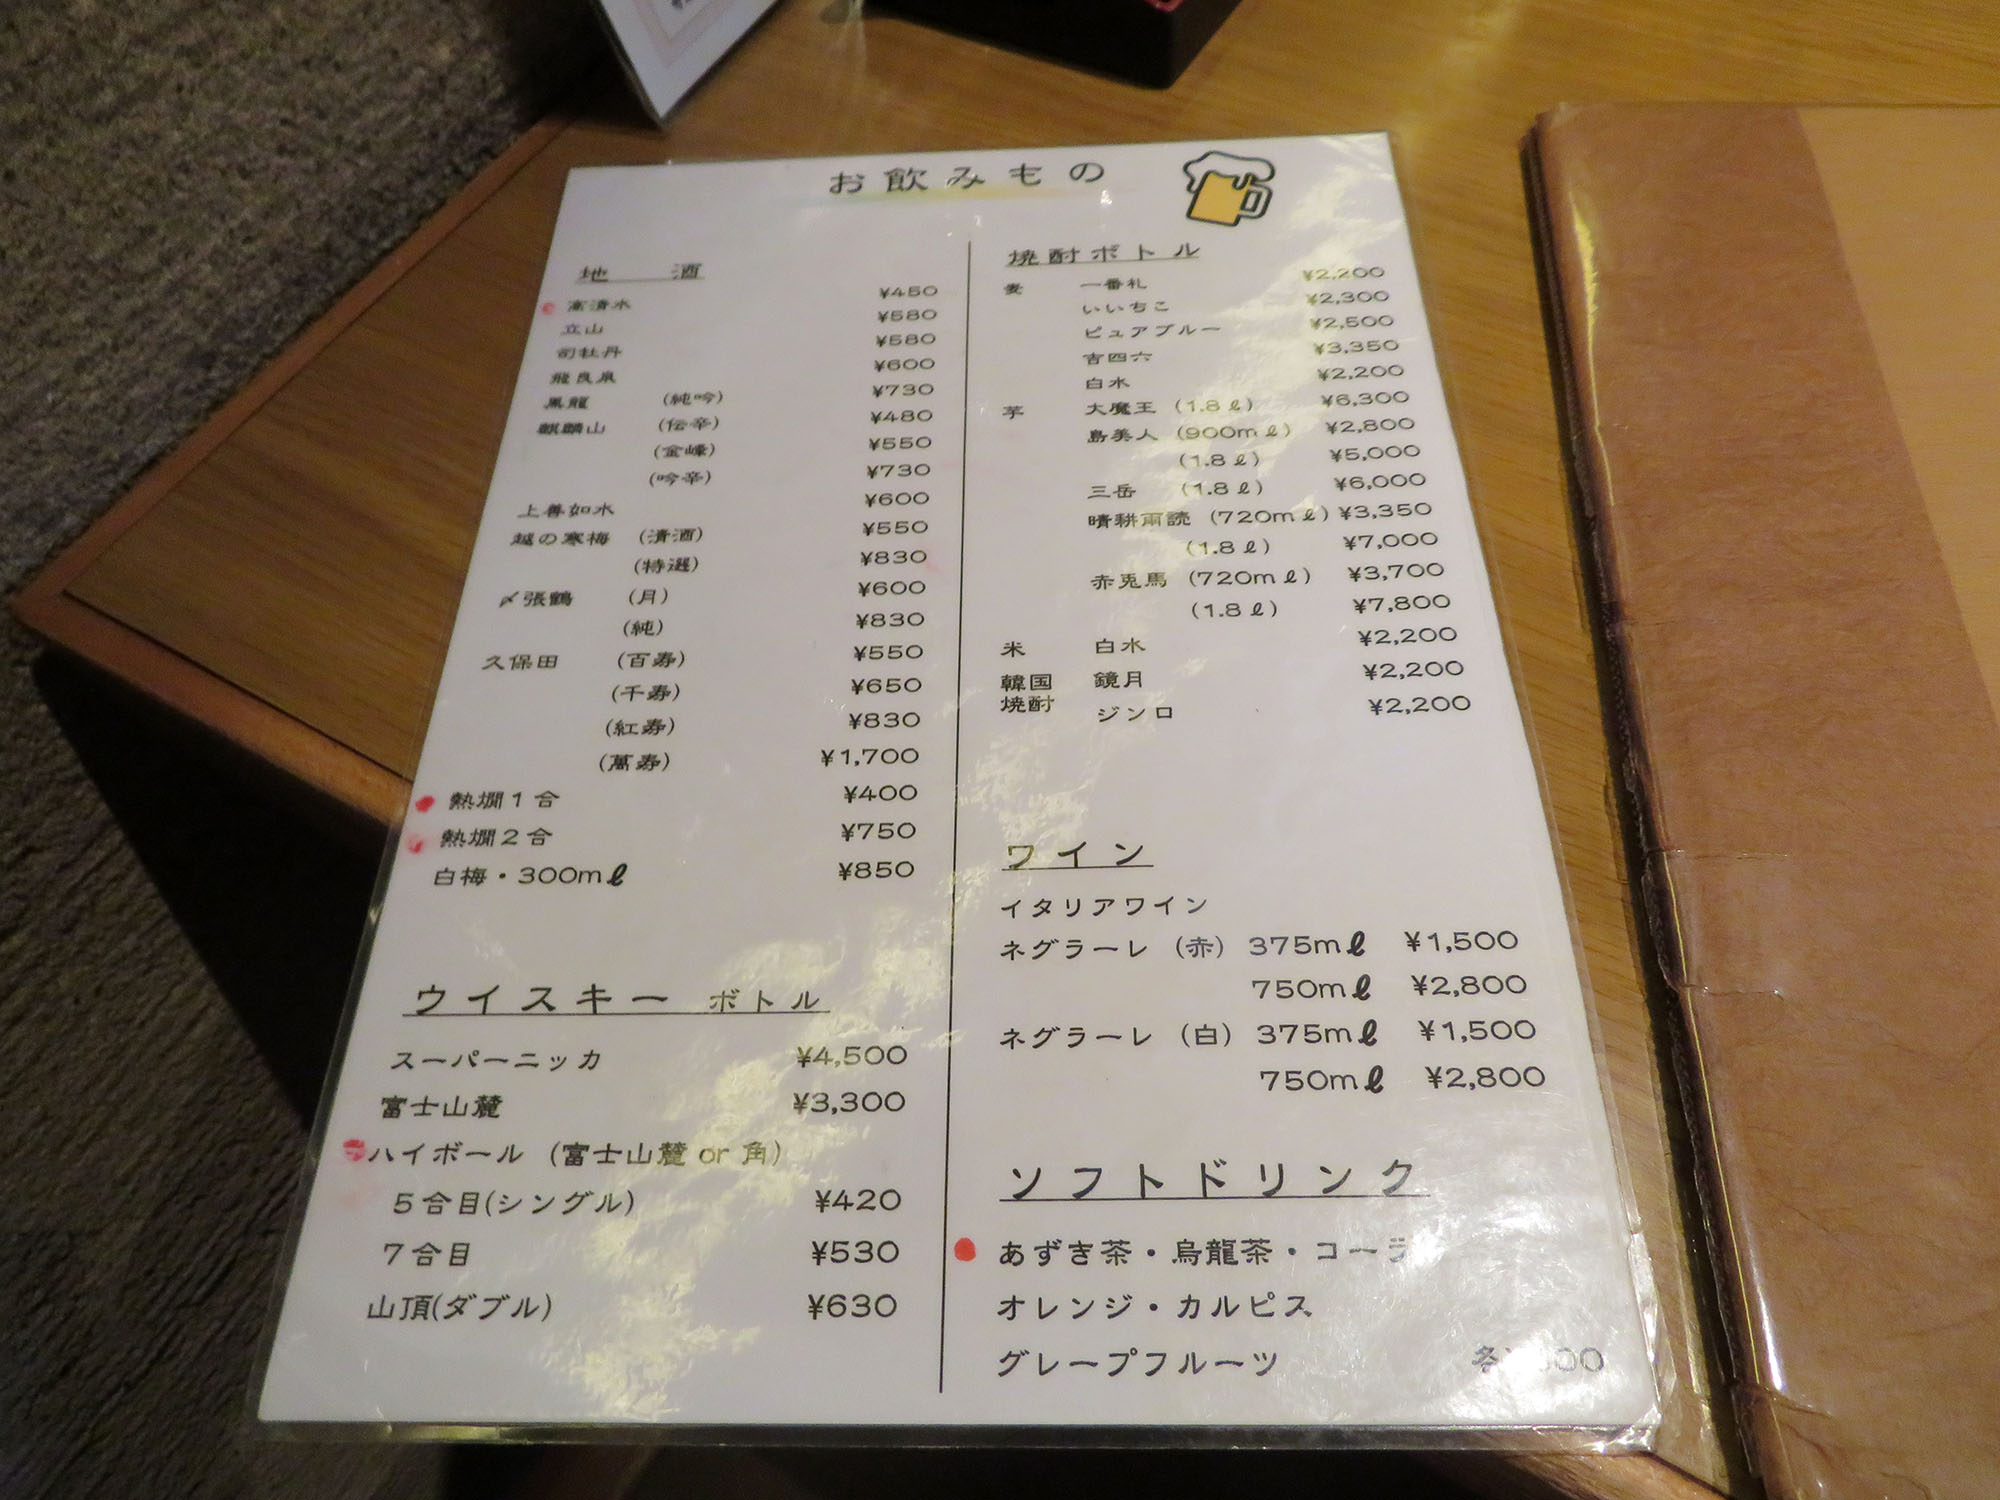 お飲みもの
地 酒
高清水 ¥450
立山 ¥580
司牡丹 ¥580
飛良泉 ¥600
黒龍 (純吟) ¥730
麒麟山 (伝辛) ¥480
(金峰) ¥550
(吟辛) ¥730
上善如水 ¥600
越の寒梅 (清酒) ¥550
(特選) ¥830
〆張鶴 (月) ¥600
(純) ¥830
久保田 (百寿) ¥550
(千寿) ¥650
(紅寿) ¥830
(萬寿) ¥1,700
熱燗1合 ¥400
熱燗2合 ¥750
白梅・300mℓ ¥850
ウイスキー ボトル
スーパーニッカ ¥4,500
富士山麓 ¥3,300
ハイボール (富士山麓 or 角)
5合目(シングル) ¥420
7合目 ¥530
山頂(ダブル) ¥630
焼酎ボトル
麦 一番札 ¥2,200
いいちこ ¥2,300
ピュアブルー ¥2,500
吉四六 ¥3,350
白水 ¥2,200
芋 大魔王 (1.8ℓ) ¥6,300
島美人 (900mℓ) ¥2,800
(1.8ℓ) ¥5,000
三岳 (1.8ℓ) ¥6,000
晴耕雨読 (720mℓ) ¥3,350
(1.8ℓ) ¥7,000
赤兎馬 (720mℓ) ¥3,700
(1.8ℓ) ¥7,800
米 白水 ¥2,200
韓国 鏡月 ¥2,200
焼酎 ジンロ ¥2,200
ワイン
イタリアワイン
ネグラーレ (赤) 375mℓ ¥1,500
750mℓ ¥2,800
ネグラーレ (白) 375mℓ ¥1,500
750mℓ ¥2,800
ソフトドリンク
あずき茶・烏龍茶・コーラ
オレンジ・カルピス
グレープフルーツ 各